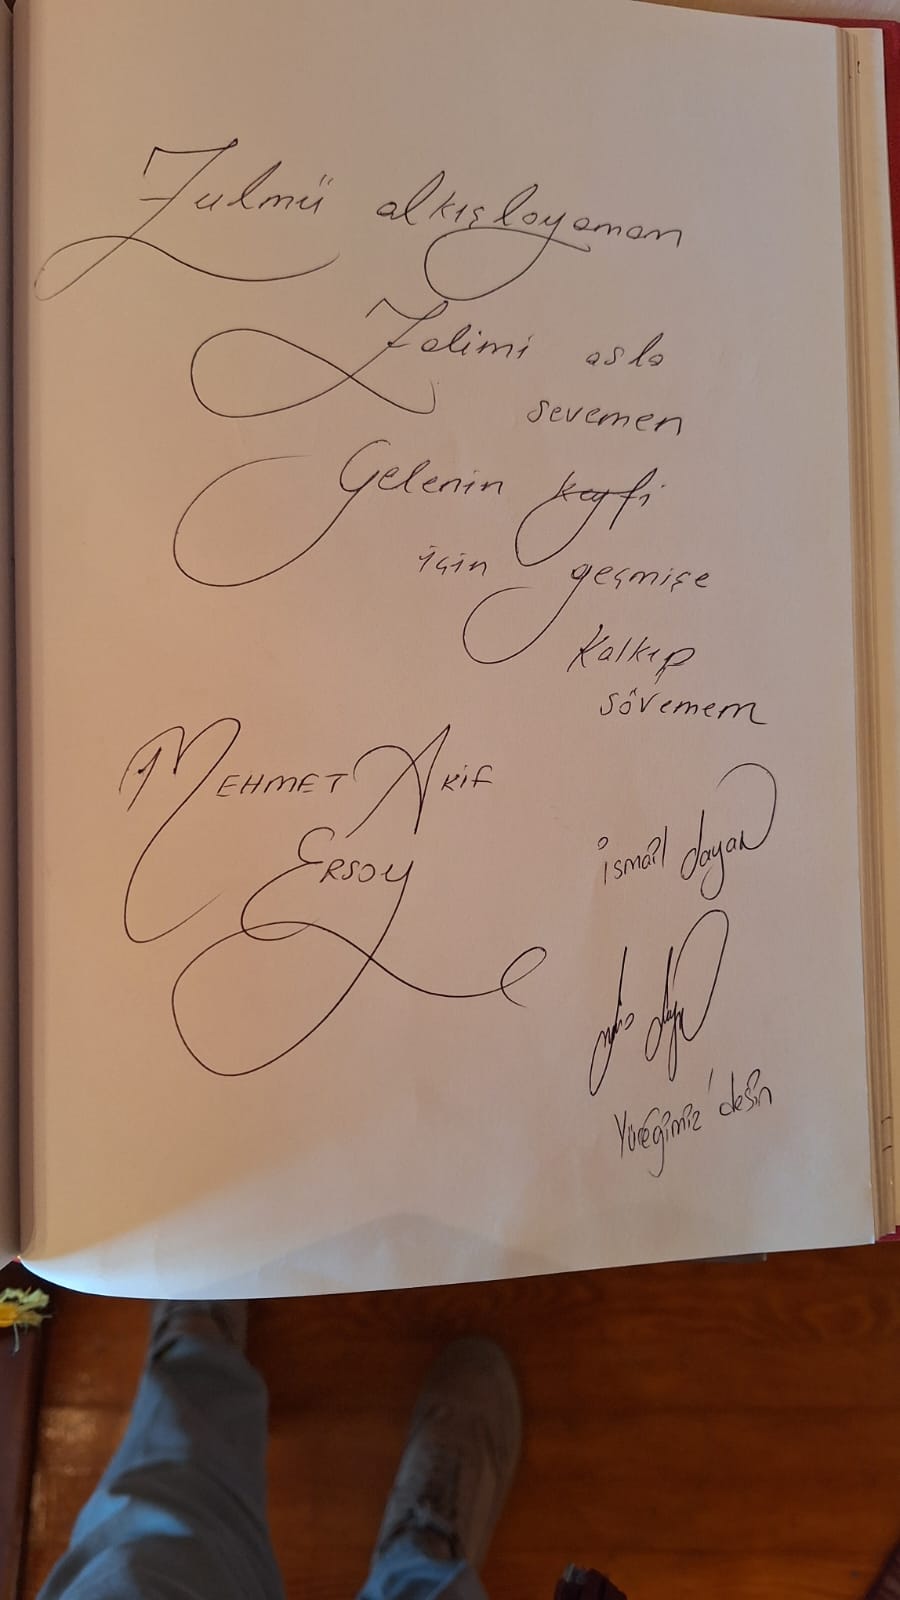 Zulmü alkışlayaman
Zalimi asla
sevemen
Gelenin keyfi
için geçmişe
Kalkıp
sövemem
MEHMET AKİF
ERSOY
ismail dayan
Yüreğimiz'desin